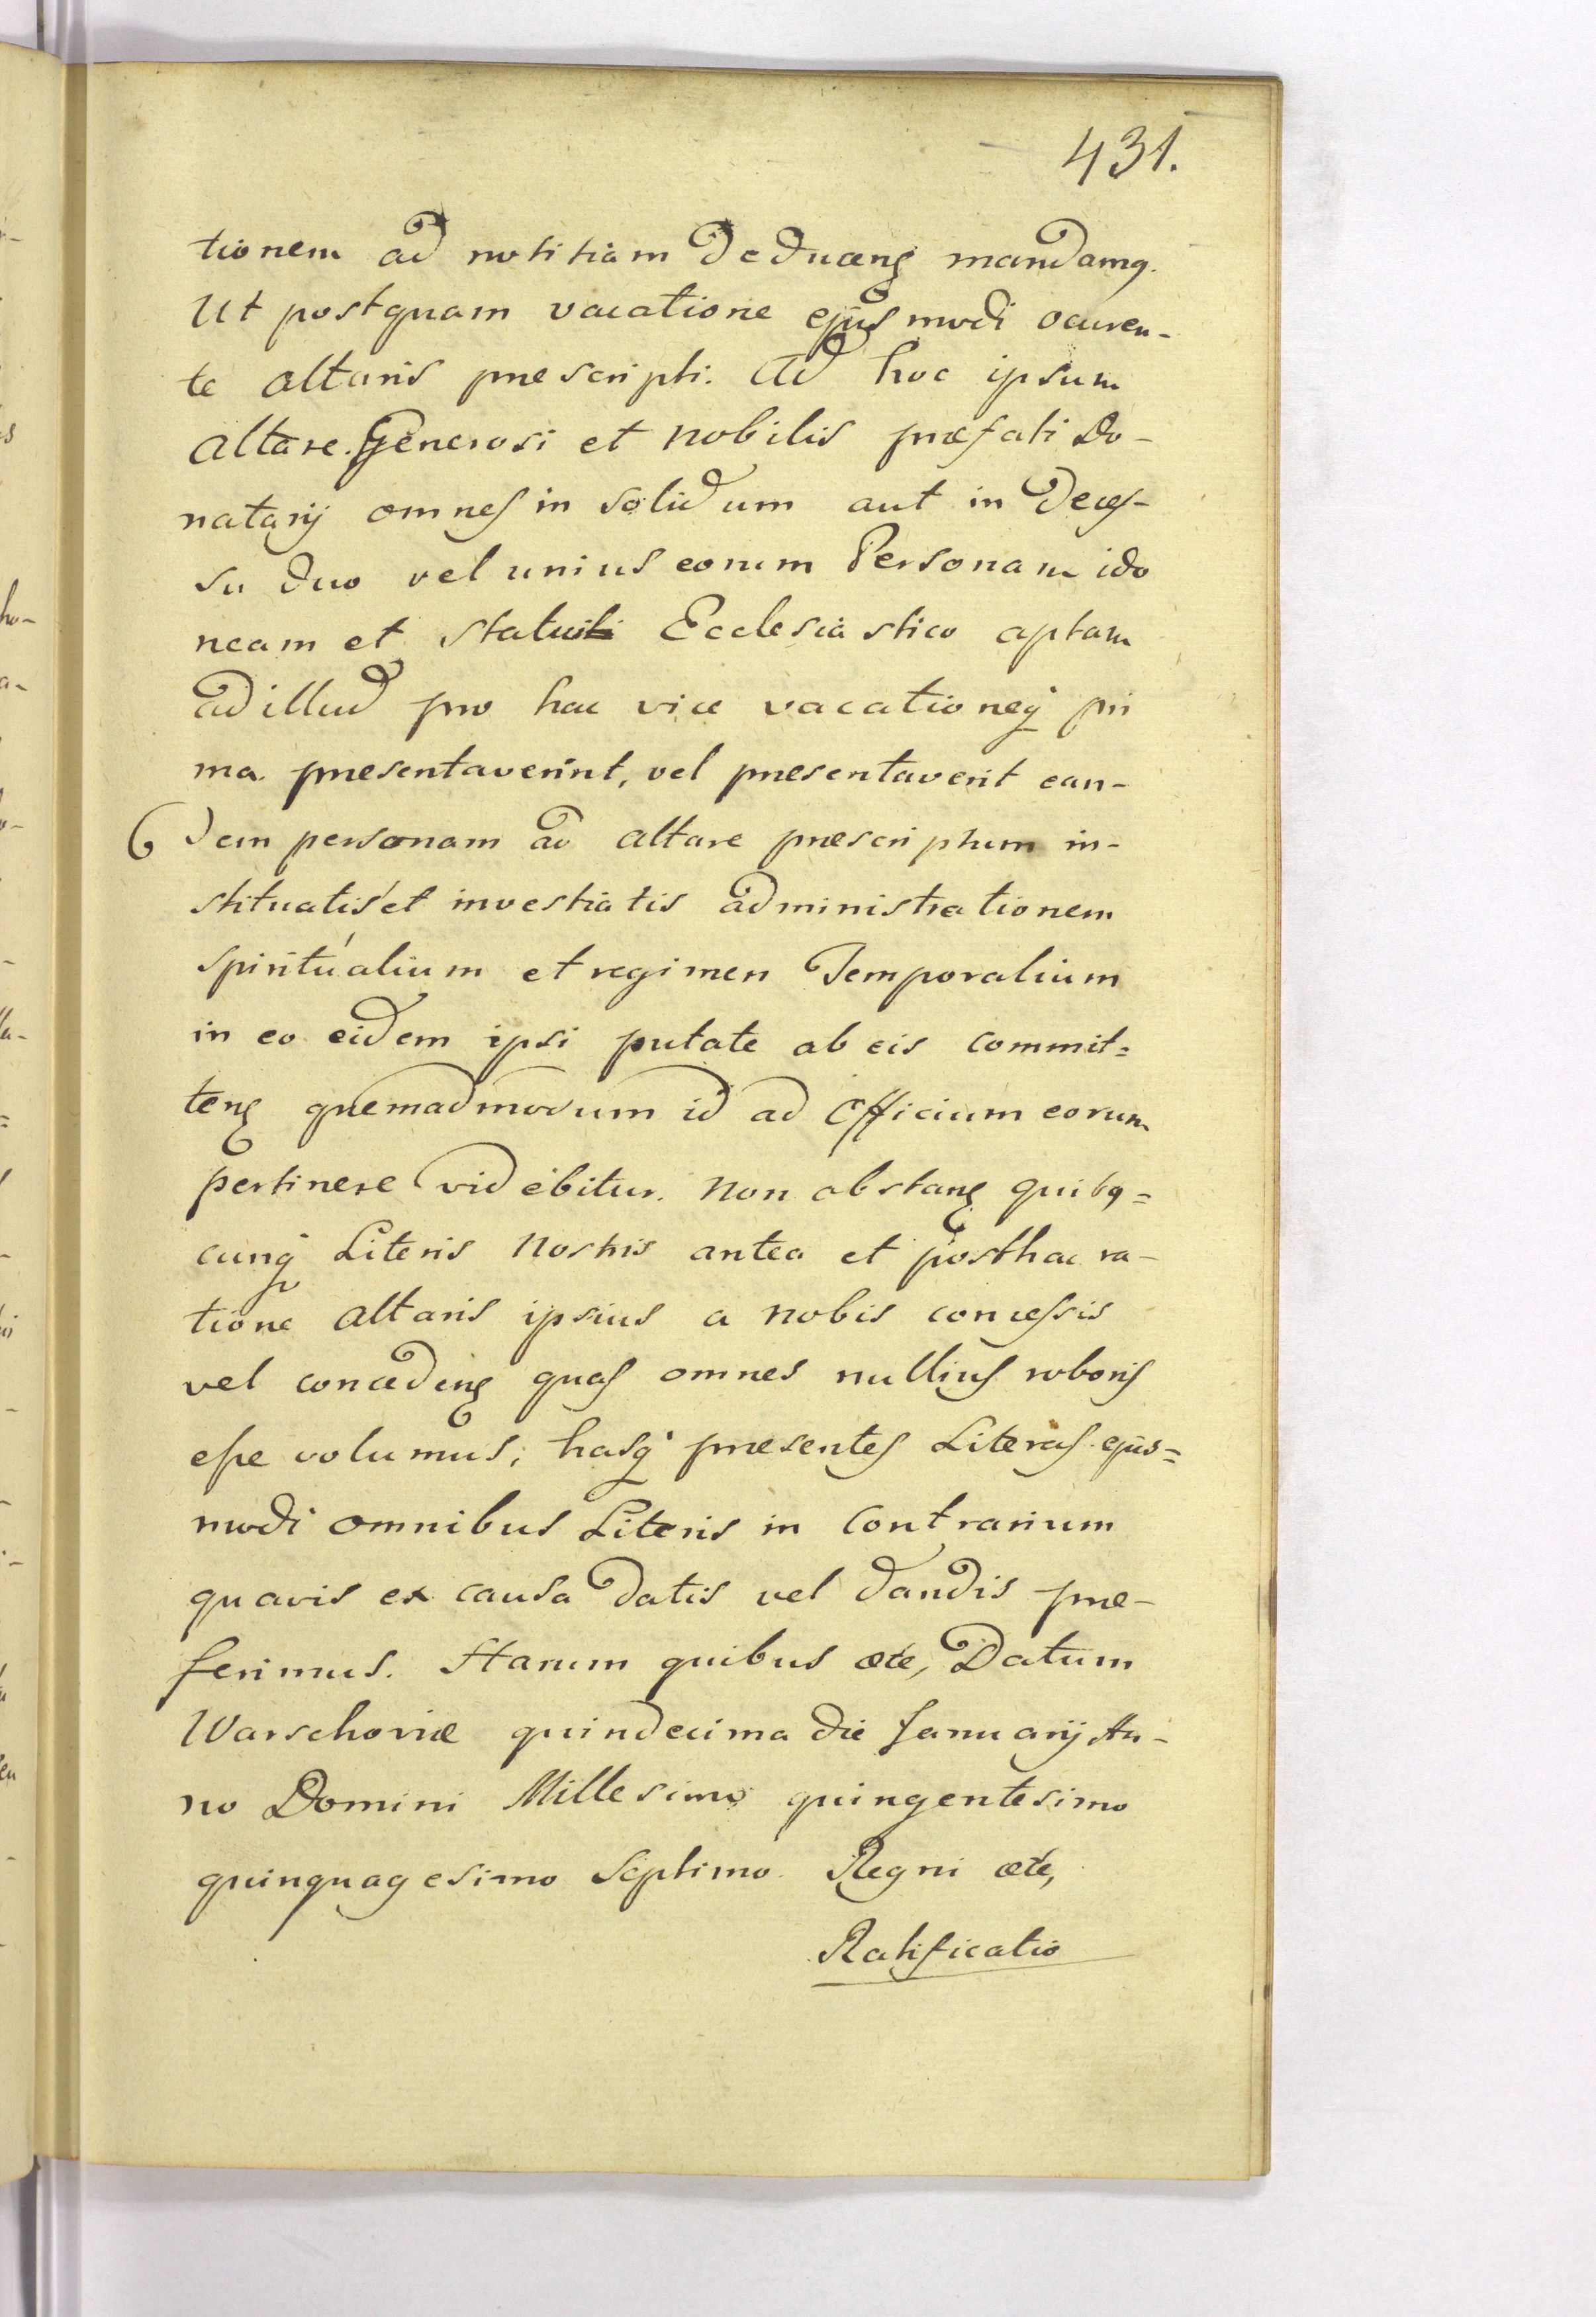 431.
tionem ad notitiam deducenꝭ mandamꝯ.
Ut postquam vacatione ejus modi occuren-
te altaris prescripti. Ad hoc ipsum
altare. Generosi et Nobilis præfati Do-
natarij omnes in solidum aut in deces-
su duo vel unius eorum Personam ido
neam et statui Ecclesiastico aptam
ad illud pro hac vice vacationeq́ pri
ma. presentaverint, vel presentaverit ean-
dem personam ad altare præscriptum in-
stituatis et investiatis administrationem
spiritualium et regimen Temporalium
in eo eidem ipsi putate ab eis commit=
tenꝭ quemadmodum id ad Officium eorum
pertinere videbitur. Non obstanꝭ quibꝯ=
cunq́ Literis Nostris antea et posthac ra-
tione altaris ipsius a nobis concessis
vel concedenꝭ quas omnes nullius roboris
esse volumus; hasq́ presentes Literas ejus=
modi omnibus Literis in Contrarium
quavis ex causa datis vel dandis præ-
ferimus. Harum quibus etc, Datum
Warschoviæ quindecima die Januarij An-
no Domini Millesimo quingentesimo
quinquagesimo septimo. Regni etc,
Ratificatio